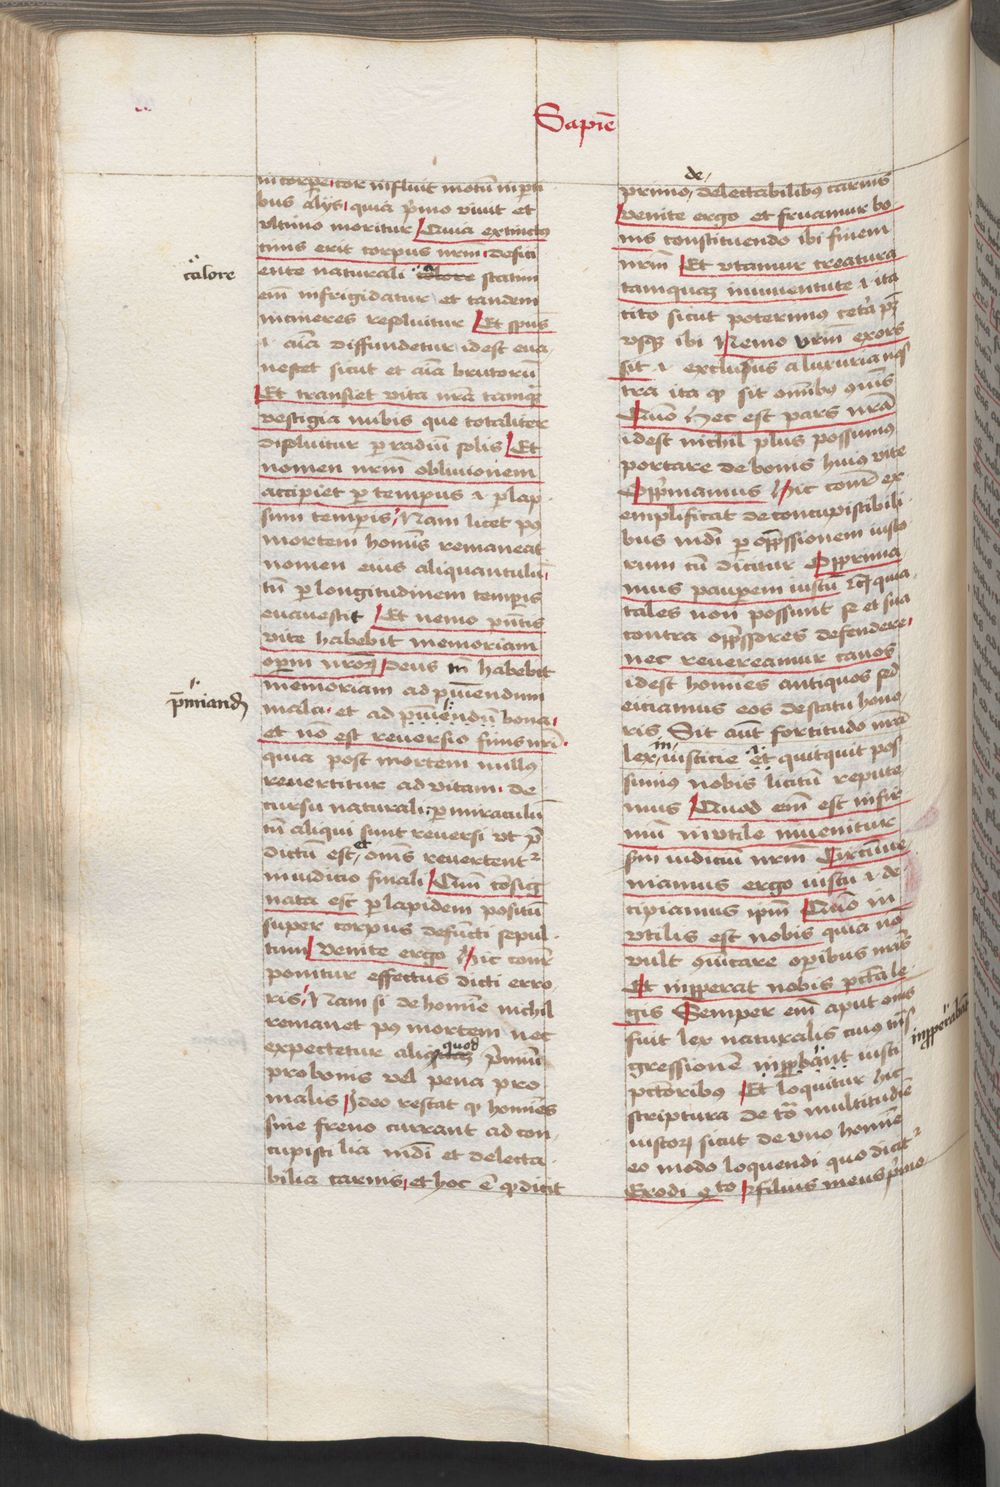 Sapie͞
in corpe cor influit motu͞ in p̱ti
bus alijs quia p͛mo viuit et
vltimo moritur Quia extinctus
cinis erit corpus nr͞m defici
ente naturali calore statim
calore
em͞ infrigidatur et tandem
in cineres resoluitur Et spu͞s
.i. ai͞a diffundetur idest eua
nescet sicut et ai͞a brutoru͞
Et transiet vita nr͞a tamq͞
vestigia nubis que totaliter
dissoluitur per radiu͞ solis Et
nomen nr͞m obliuionem
accipiet per tempus .i. p̱ lap
sum temp̱is Nam licet p9
mortem homi͞s remaneat
nomen eius aliquantulu͞
tn͞ per longitudinem temp̱is
euanescit Et nemo pn͞tis
vite habebit memoriam
op̱m nr͞oꝝ deus tn͞ habebit
memoriam ad puniendum
mala et ad puniendu͞ bona
p͞miand͞
et no͞ est reuersio finis nr͞i
quia post mortem nullus
reuertitur ad vitam de
cursu naturali p̱ miraculu͞
tn͞ aliqui sunt reuersi vt p͛
dictu͞ est et om͞s reuertent᷑
in iudicio finali Qm͞ co͞sig
nata est per lapidem positu͞
super corpus defu͞cti sepul
tum Venite ergo Hic co͞r
ponitur effectus dicti erro
ris Nam si de homi͞e nichil
remanet p9 mortem nec
expectetur aliquod p͛miu͞
pro bonis vel pena pro
malis Ideo restat ꝙ homi͞es
sine freno currant ad con
cupiscibilia mu͞di et delecta
bilia carnis et hoc e͞ ꝙ dicit
primo de delectabilibus carnis
Venite ergo et fruamur bo
nis constituendo ibi finem
nr͞m Et vtamur creatura
tamquaꝫ in iuuentute .i. ita
cito sicut poterimus cetera p͛
vsqꝫ ibi Nemo vr͞m exors
sit .i. exclusus a luxuria nos
tra ita ꝙ sit omi͞bus co͞is
Quo͞ hec est pars nr͞a
idest nichil plus possumus
portare de bonis huius vite
Opp͛mamus Hic co͞r ex
emplificat de concupiscibili
bus mu͞di per opp͛ssionem iusto
rum cu͞ dicitur Opprima
mus pauperem iustu͞ ⁊cͣ quia
tales non possunt se et sua
contra opp͛ssores defendere
nec reuereamur canos
idest homi͞es antiquos sed
eiciamus eos de statu hono
ris Sit aut͞ fortitudo nr͞a
lex in iusticie et quicquit pos
sumus nobis licitu͞ repute
mus Quod em͞ est infir
mu͞ inutile inuenitur
scd͞m iudiciu͞ nr͞m Circu͞ue
niamus ergo iustu͞ .i. de
cipiamus ipm͞ Quo͞ in
vtilis est nobis quia no͞
vult co͞icare op̱ibus nr͞is
Et improperat nobis pctͣ le
gis Semper em͞ aput om͞s
fuit lex naturalis cuius tns͞
gressione͞ improbant iusti
improperabant
pcc͞toribus Et loquitur hic
scriptura de to͞ multitudi͞e
iustoꝝ sicut de vno homi͞e
eo modo loquendi quo dicit᷑
Exodi q͛to filius meus primo